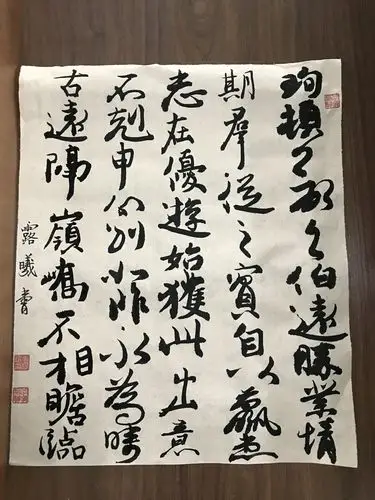 珣頓首頓首伯遠勝業情
期羣從之寶自以羸患
志在優遊始獲此出意
不剋申分別如昨永為疇
古遠隔嶺嶠不相瞻臨
露曦書